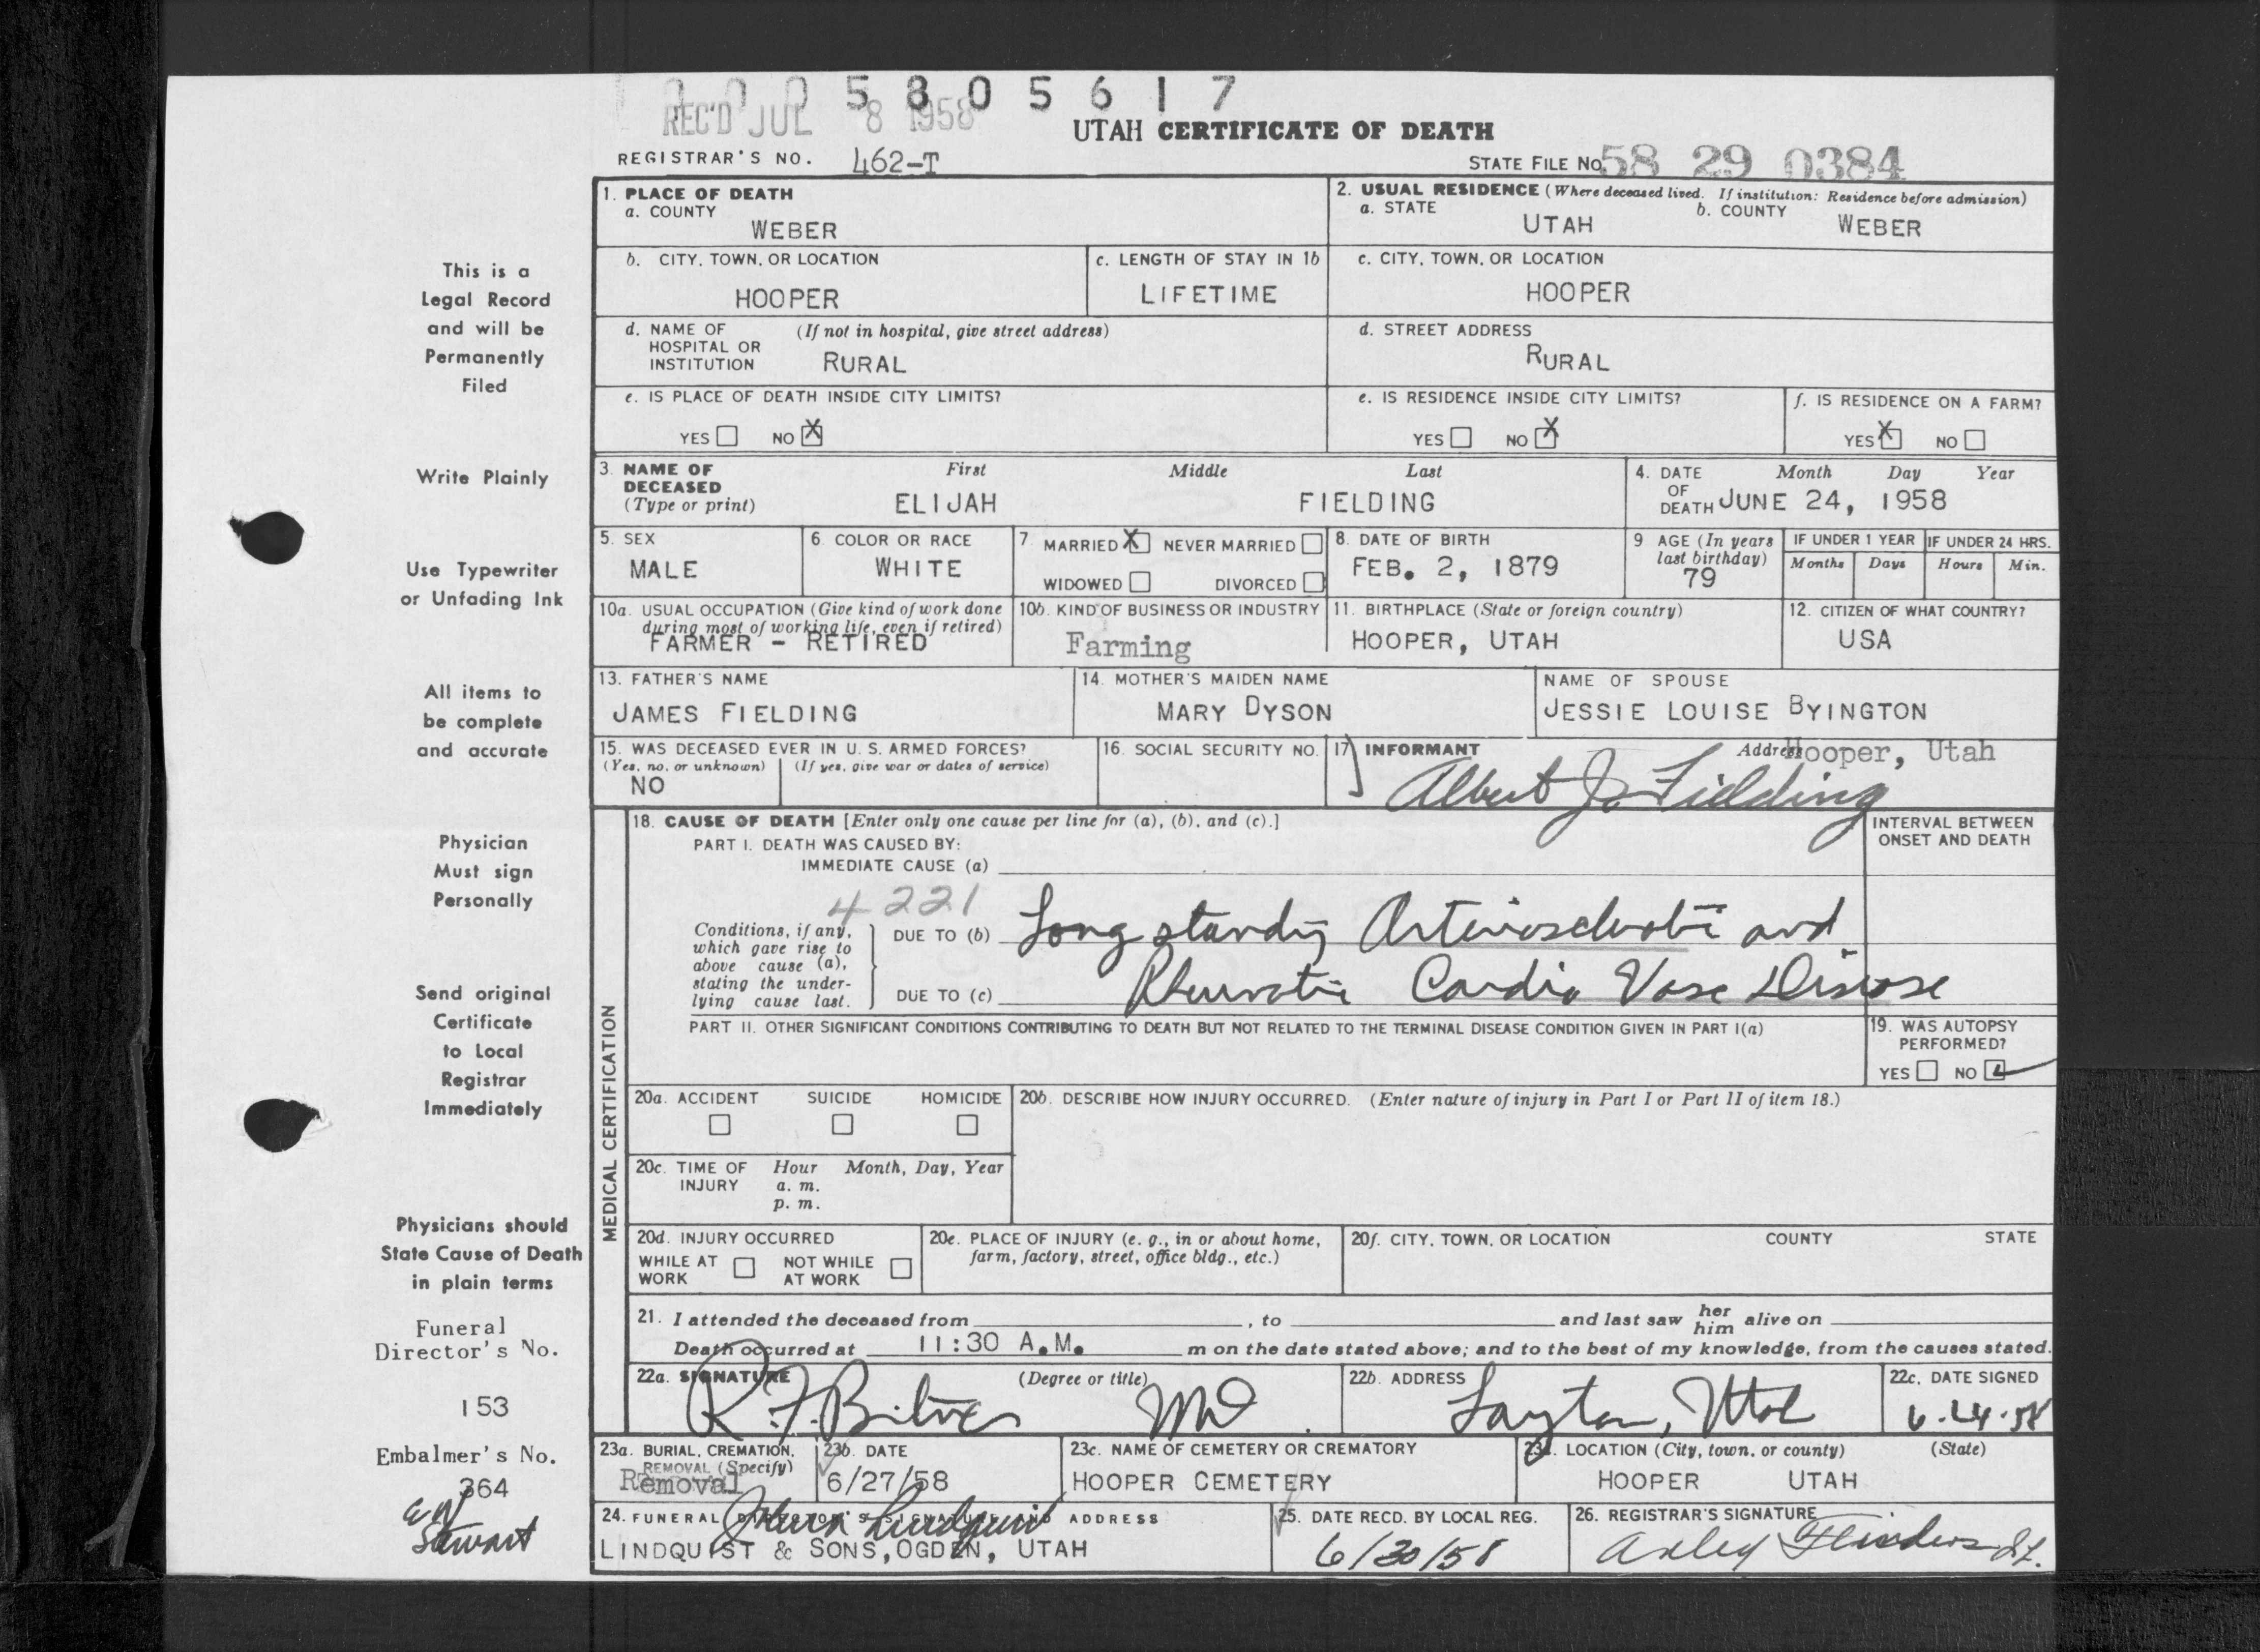 0 0 0 5 8 0 5 6 1 7
REC'D JUL 8 1958
UTAH CERTIFICATE OF DEATH
REGISTRAR'S NO. 462-T
STATE FILE No. 58 29 0384
This is a
Legal Record
and will be
Permanently
Filed
Write Plainly
Use Typewriter
or Unfading Ink
All items to
be complete
and accurate
Physician
Must sign
Personally
Send original
Certificate
to Local
Registrar
Immediately
Physicians should
State Cause of Death
in plain terms
Funeral
Director's No.
153
Embalmer's No.
364
Stewart
1. PLACE OF DEATH
a. COUNTY
WEBER
2. USUAL RESIDENCE (Where deceased lived. If institution: Residence before admission)
a. STATE UTAH b. COUNTY WEBER
b. CITY, TOWN, OR LOCATION
HOOPER
c. LENGTH OF STAY IN 1b
LIFETIME
c. CITY, TOWN, OR LOCATION
HOOPER
d. NAME OF (If not in hospital, give street address)
HOSPITAL OR
INSTITUTION RURAL
d. STREET ADDRESS
RURAL
e. IS PLACE OF DEATH INSIDE CITY LIMITS?
YES NO X
e. IS RESIDENCE INSIDE CITY LIMITS?
YES NO X
f. IS RESIDENCE ON A FARM?
YES X NO
3. NAME OF First Middle Last
DECEASED
(Type or print) ELIJAH FIELDING
4. DATE Month Day Year
OF
DEATH JUNE 24, 1958
5. SEX
MALE
6. COLOR OR RACE
WHITE
7. MARRIED X NEVER MARRIED
WIDOWED DIVORCED
8. DATE OF BIRTH
FEB. 2, 1879
9 AGE (In years
last birthday)
79
IF UNDER 1 YEAR IF UNDER 24 HRS.
Months Days Hours Min.
10a. USUAL OCCUPATION (Give kind of work done
during most of working life, even if retired)
FARMER - RETIRED
10b. KIND OF BUSINESS OR INDUSTRY
Farming
11. BIRTHPLACE (State or foreign country)
HOOPER, UTAH
12. CITIZEN OF WHAT COUNTRY?
USA
13. FATHER'S NAME
JAMES FIELDING
14. MOTHER'S MAIDEN NAME
MARY DYSON
NAME OF SPOUSE
JESSIE LOUISE BYINGTON
15. WAS DECEASED EVER IN U. S. ARMED FORCES?
(Yes, no, or unknown) (If yes, give war or dates of service)
NO
16. SOCIAL SECURITY NO.
17 INFORMANT Address Hooper, Utah
Albert J. Fielding
MEDICAL CERTIFICATION
18. CAUSE OF DEATH [Enter only one cause per line for (a), (b), and (c).]
INTERVAL BETWEEN
ONSET AND DEATH
PART I. DEATH WAS CAUSED BY:
IMMEDIATE CAUSE (a)
4221
Conditions, if any,
which gave rise to
above cause (a),
stating the under-
lying cause last.
DUE TO (b) Long standing Arteriosclerotic and
DUE TO (c) Rheumatic Cardio Vasc Disease
PART II. OTHER SIGNIFICANT CONDITIONS CONTRIBUTING TO DEATH BUT NOT RELATED TO THE TERMINAL DISEASE CONDITION GIVEN IN PART I(a)
19. WAS AUTOPSY
PERFORMED?
YES NO
20a. ACCIDENT SUICIDE HOMICIDE
20b. DESCRIBE HOW INJURY OCCURRED. (Enter nature of injury in Part I or Part II of item 18.)
20c. TIME OF Hour Month, Day, Year
INJURY a. m.
p. m.
20d. INJURY OCCURRED
WHILE AT NOT WHILE
WORK AT WORK
20e. PLACE OF INJURY (e. g., in or about home,
farm, factory, street, office bldg., etc.)
20f. CITY, TOWN, OR LOCATION COUNTY STATE
21. I attended the deceased from , to and last saw her him alive on
Death occurred at 11:30 A.M. m on the date stated above; and to the best of my knowledge, from the causes stated.
22a. SIGNATURE (Degree or title)
R. F. MD
22b. ADDRESS
Layton, Utah
22c. DATE SIGNED
6-24-58
23a. BURIAL, CREMATION,
REMOVAL (Specify)
Removal
23b. DATE
6/27/58
23c. NAME OF CEMETERY OR CREMATORY
HOOPER CEMETERY
23d. LOCATION (City, town, or county) (State)
HOOPER UTAH
24. FUNERAL DIRECTOR'S SIGNATURE AND ADDRESS
Lindquist
LINDQUIST & SONS, OGDEN, UTAH
25. DATE RECD. BY LOCAL REG.
6/30/58
26. REGISTRAR'S SIGNATURE
Flinders